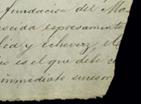 fundacion del Ma
ocida espresamente
lia y echeverz, el
o es el que debe c
inmediato suceso